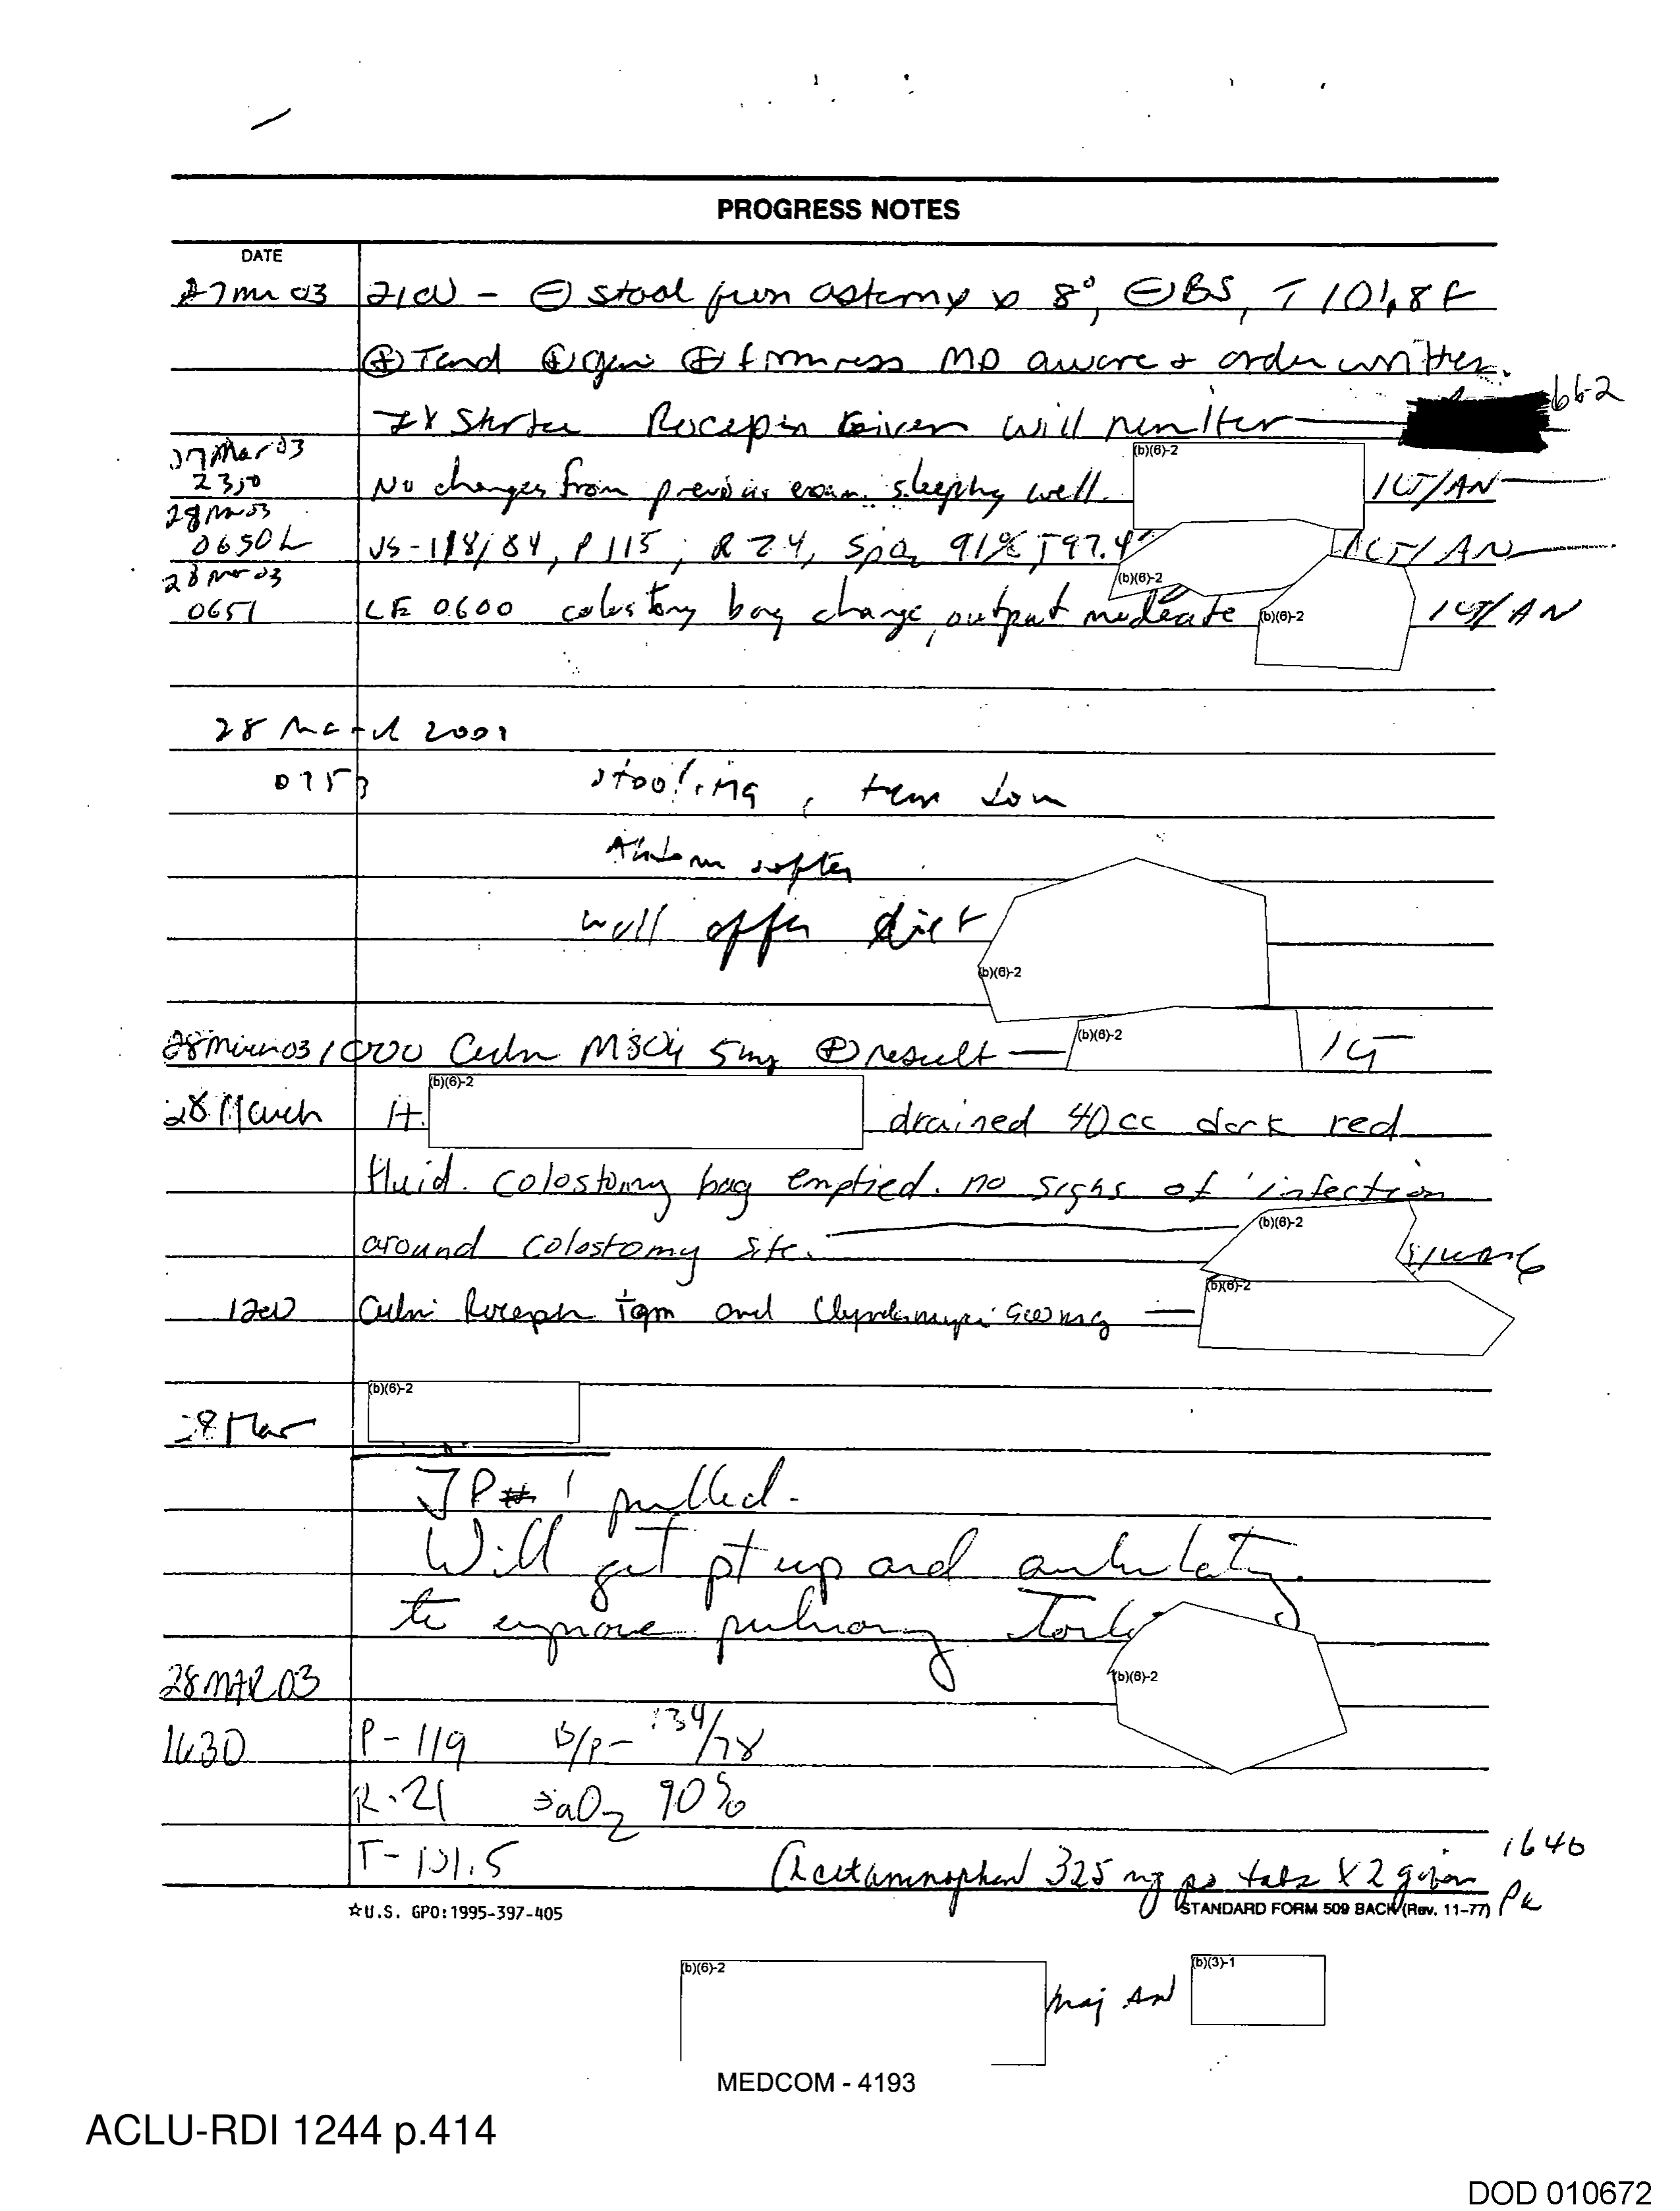 PROGRESS NOTES
DATE
27 Mar 03 2100 - ⊖ stool from ostomy x 8°, ⊖ BS, T 101.8 F
⊕ Tend ⊕ ⊕ firmness MD aware & order written.
Rocepin Given will moniter b6-2
27 Mar 03
2350 No changes from previous exam. sleeping well. (b)(6)-2 1LT/AN
28 Mar 03
0650L VS-118/84, P 115, R 24, SpO2 91% T97.4 (b)(6)-2 1LT/AN
28 Mar 03
0651 LE 0600 colostomy bag change, output moderate (b)(6)-2 1LT/AN
28 March 2003
0753 stooling,
Abdom softer
will offer diet (b)(6)-2
28 March 03 / 1000 MSO4 5mg ⊕ result (b)(6)-2 1LT
28 March (b)(6)-2 drained 40cc dark red
fluid. colostomy bag emptied. no signs of infection
around colostomy site. (b)(6)-2 91WM6
1200 Roceph 1gm and Clyndamyci 600mg (b)(6)-2
28 Mar (b)(6)-2
JP# 1 pulled.
Will get pt up and ambulating
to improve pulmonary (b)(6)-2
28 MAR 03
1630 P-119 B/P- 134/78
R-21 SaO2 90%
T-101.5 Acetaminophen 325 mg po tabs X 2 given 1640
☆U.S. GPO:1995-397-405 STANDARD FORM 509 BACK (Rev. 11-77)
(b)(6)-2 Maj AN (b)(3)-1
MEDCOM - 4193
ACLU-RDI 1244 p.414
DOD 010672